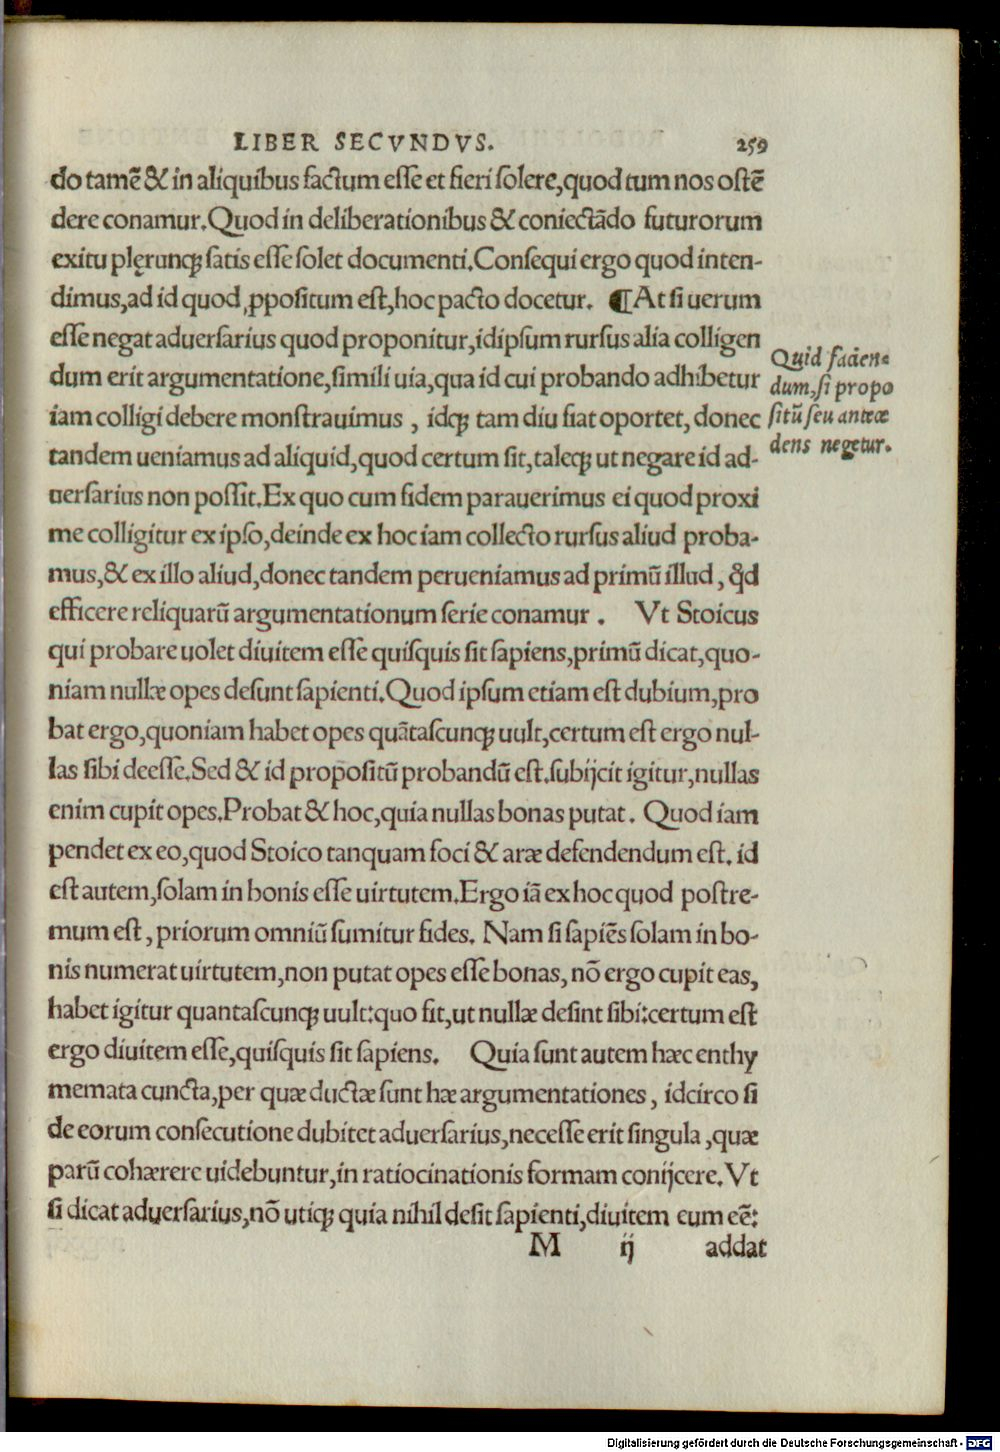 LIBER SECVNDVS. 259
do tamẽ & in aliquibus factum esse et fieri solere, quod tum nos ostẽ
dere conamur. Quod in deliberationibus & coniectãdo futurorum
exitu plęrunqꝫ satis esse solet documenti. Consequi ergo quod inten-
dimus, ad id quod ꝓpositum est, hoc pacto docetur. ¶ At si uerum
esse negat aduersarius quod proponitur, idipsum rursus alia colligen
dum erit argumentatione, simili uia, qua id cui probando adhibetur
iam colligi debere monstrauimus, idqꝫ tam diu fiat oportet, donec
tandem ueniamus ad aliquid, quod certum sit, taleqꝫ ut negare id ad-
uersarius non possit. Ex quo cum fidem parauerimus ei quod proxi
me colligitur ex ipso, deinde ex hoc iam collecto rursus aliud proba-
mus, & ex illo aliud, donec tandem perueniamus ad primũ illud, qď
efficere reliquarũ argumentationum serie conamur. Vt Stoicus
qui probare uolet diuitem esse quisquis sit sapiens, primũ dicat, quo-
niam nullæ opes desunt sapienti. Quod ipsum etiam est dubium, pro
bat ergo, quoniam habet opes quãtascunqꝫ uult, certum est ergo nul-
las sibi deesse. Sed & id propositũ probandũ est. subijcit igitur, nullas
enim cupit opes. Probat & hoc, quia nullas bonas putat. Quod iam
pendet ex eo, quod Stoico tanquam foci & aræ defendendum est. id
est autem, solam in bonis esse uirtutem. Ergo iã ex hoc quod postre-
mum est, priorum omniũ sumitur fides. Nam si sapiẽs solam in bo-
nis numerat uirtutem, non putat opes esse bonas, nõ ergo cupit eas,
habet igitur quantascunqꝫ uult: quo fit, ut nullæ desint sibi: certum est
ergo diuitem esse, quisquis sit sapiens. Quia sunt autem hæc enthy
memata cuncta, per quæ ductæ sunt hæ argumentationes, idcirco si
de eorum consecutione dubitet aduersarius, necesse erit singula, quæ
parũ cohærere uidebuntur, in ratiocinationis formam conijcere. Vt
si dicat aduersarius, nõ utiqꝫ quia nihil desit sapienti, diuitem eum eẽ:
M ij addat
Quid facien-
dum, si propo
sitũ seu antece
dens negetur.
Digitalisierung gefördert durch die Deutsche Forschungsgemeinschaft - DFG